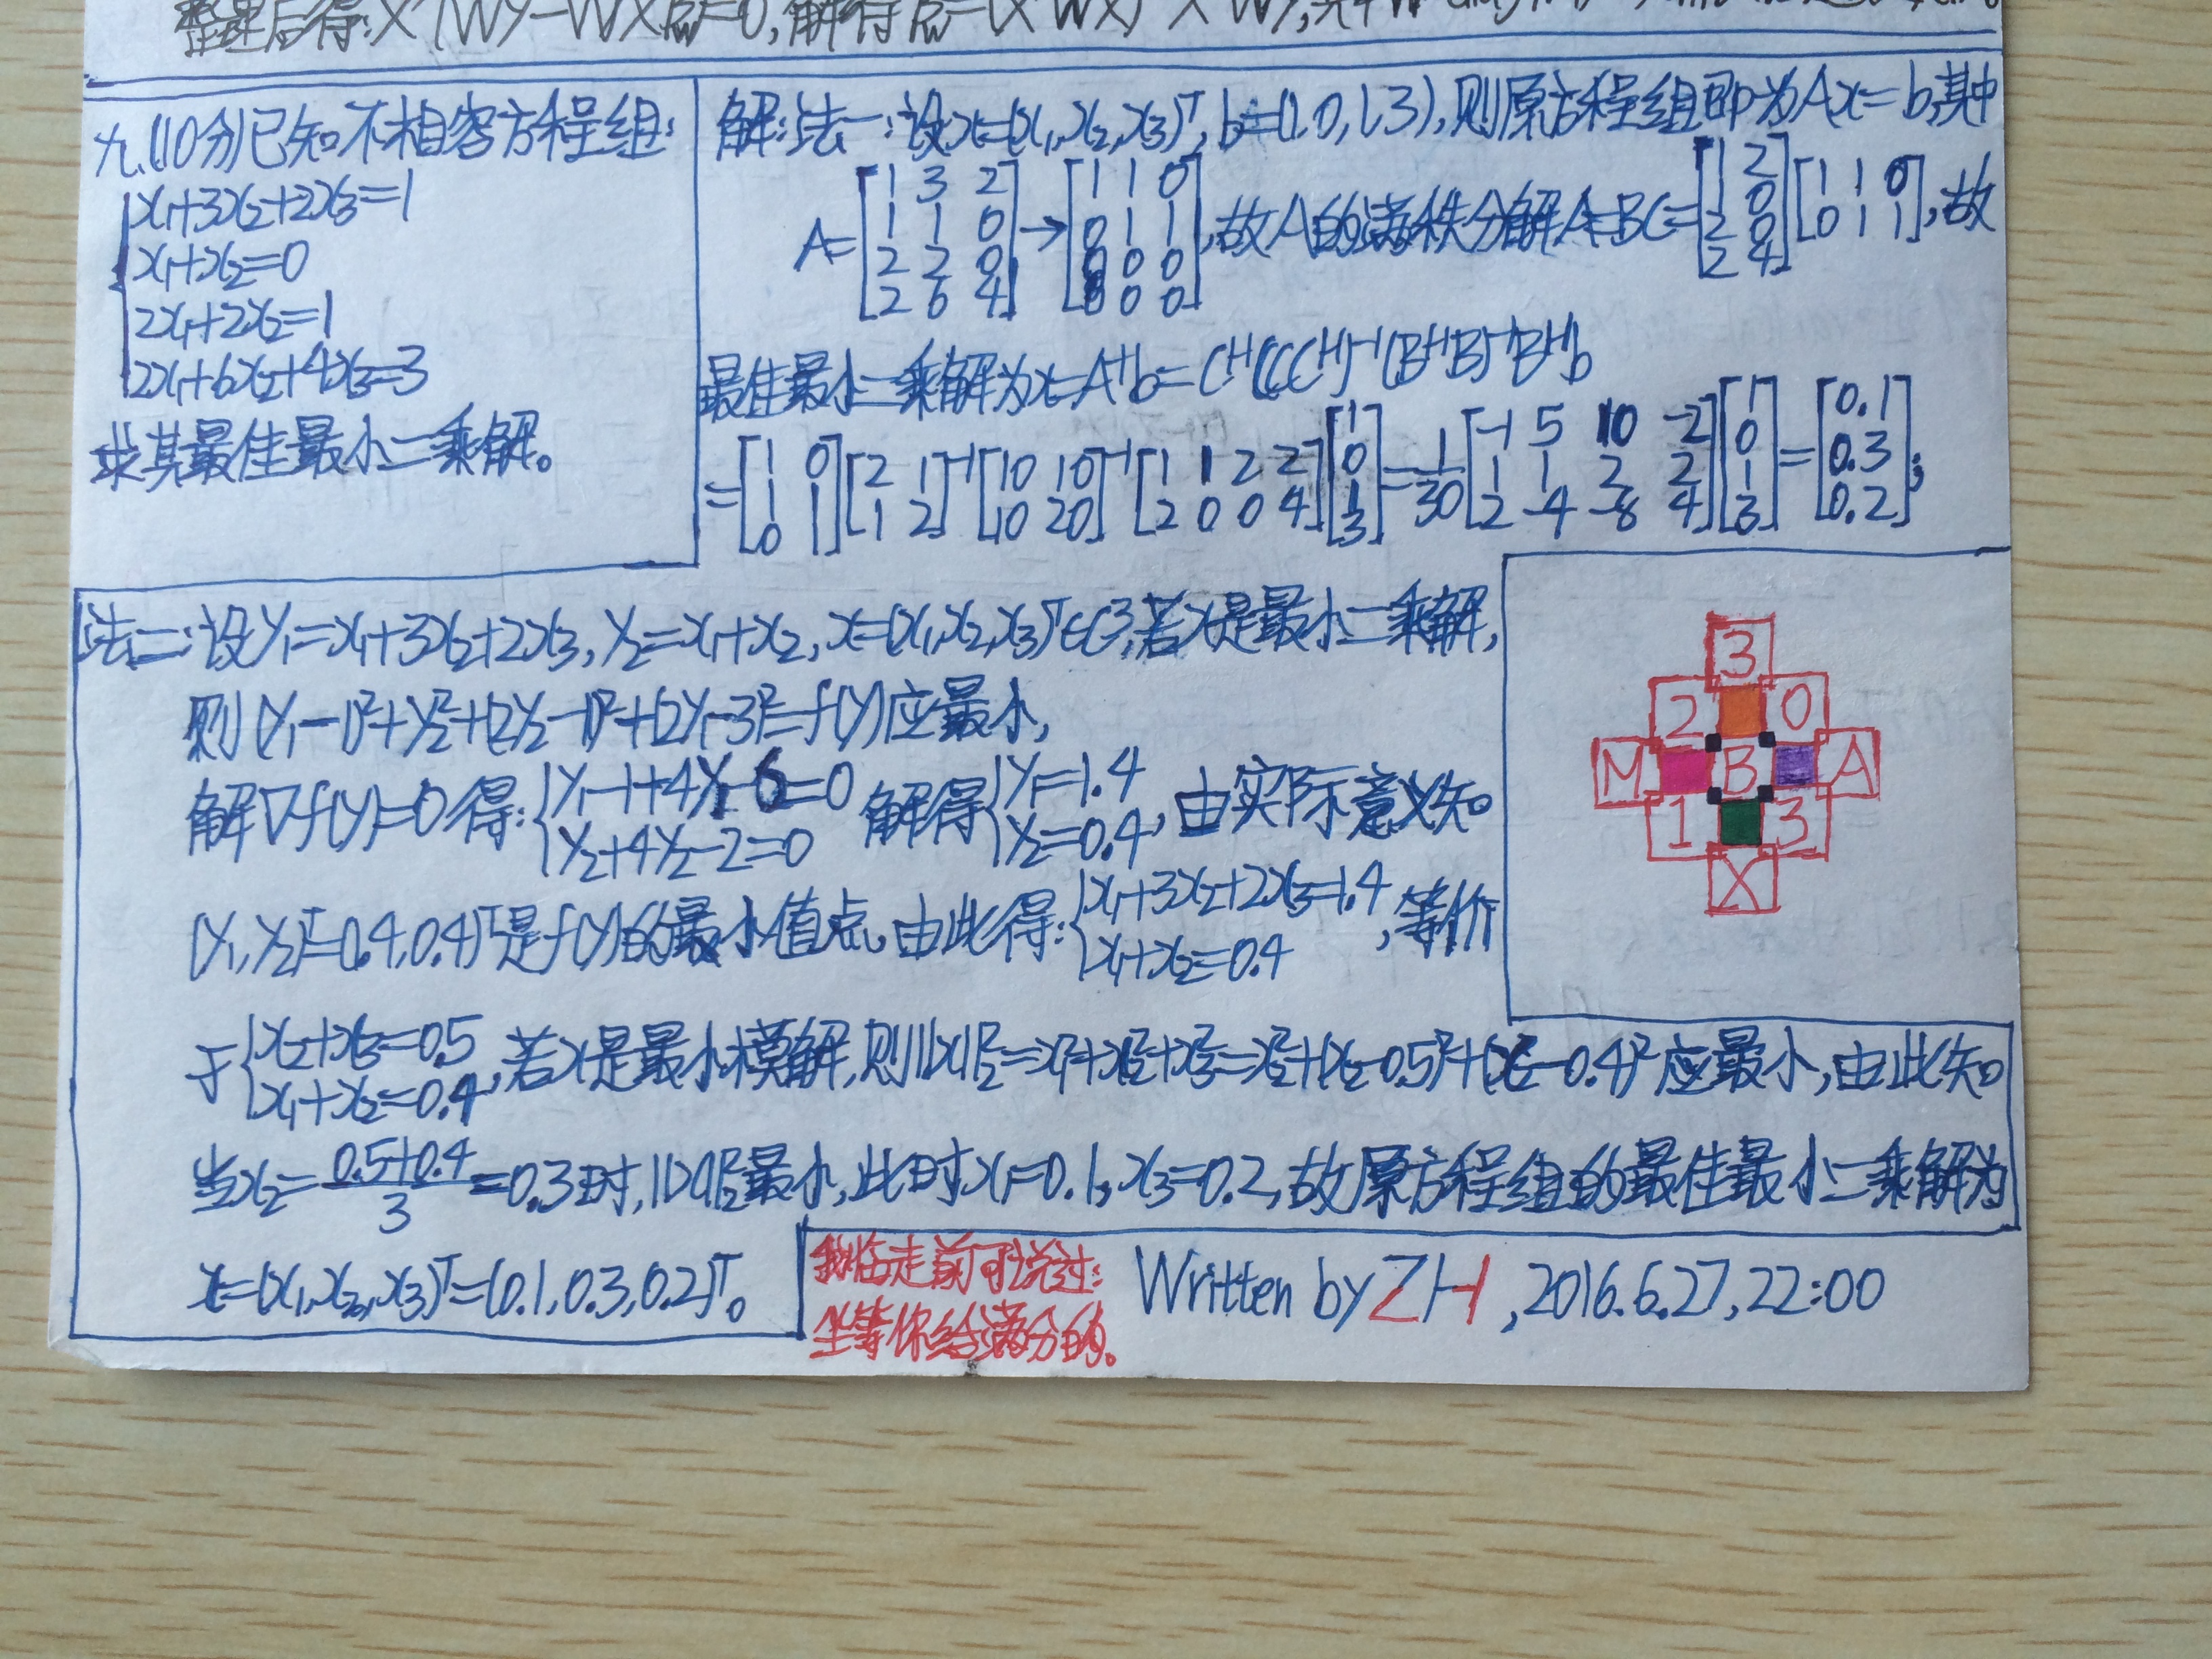 整理后得:X^T(Wy-WXβ_w)=0,解得β_w=(X^TWX)^-1X^TWy,其中W
九、(10分)已知不相容方程组:
x₁+3x₂+2x₃=1
x₁+x₂=0
2x₁+2x₂=1
2x₁+6x₂+4x₃=3
求其最佳最小二乘解。
解:法一:设x=(x₁,x₂,x₃)^T,b=(1,0,1,3),则原方程组即为Ax=b,其中
A=[1 3 2; 1 1 0; 2 2 0; 2 6 4]→[1 1 0; 0 1 1; 0 0 0; 0 0 0],故A的满秩分解A=BC=[1 2; 1 0; 2 0; 2 4][1 1 0; 0 1 1],故
最佳最小二乘解为x=A⁺b=C^H(CC^H)^-1(B^HB)^-1B^Hb
=[1 0; 1 1; 0 1][2 1; 1 2]^-1[10 10; 10 20]^-1[1 1 2 2; 2 0 0 4][1; 0; 1; 3]=1/30[-1 5 10 -2; 1 1 2 2; 2 -4 -8 4][1; 0; 1; 3]=[0.1; 0.3; 0.2];
法二:设y₁=x₁+3x₂+2x₃,y₂=x₁+x₂,x=(x₁,x₂,x₃)^T∈C³,若x是最小二乘解,
则(y₁-1)²+y₂²+(2y₂-1)²+(2y₁-3)²=f(y)应最小,
解∇f(y)=0得:{y₁-1+4y₁-6=0 解得{y₁=1.4
y₂+4y₂-2=0 y₂=0.4,由实际意义知
(y₁,y₂)^T=(0.4,0.4)^T是f(y)的最小值点,由此得:{x₁+3x₂+2x₃=1.4
x₁+x₂=0.4,等价
于{x₂+x₃=0.5
x₁+x₂=0.4,若x是最小模解,则||x||₂²=x₁²+x₂²+x₃²=x₂²+(x₂-0.5)²+(x₂-0.4)²应最小,由此知
当x₂=(0.5+0.4)/3=0.3时,||x||₂²最小,此时x₁=0.1,x₃=0.2,故原方程组的最佳最小二乘解为
x=(x₁,x₂,x₃)^T=(0.1,0.3,0.2)^T。
3
2 0
M B A
1 3
X
我临走前可说过:
坐等你给满分的。
Written by ZH,2016.6.27,22:00